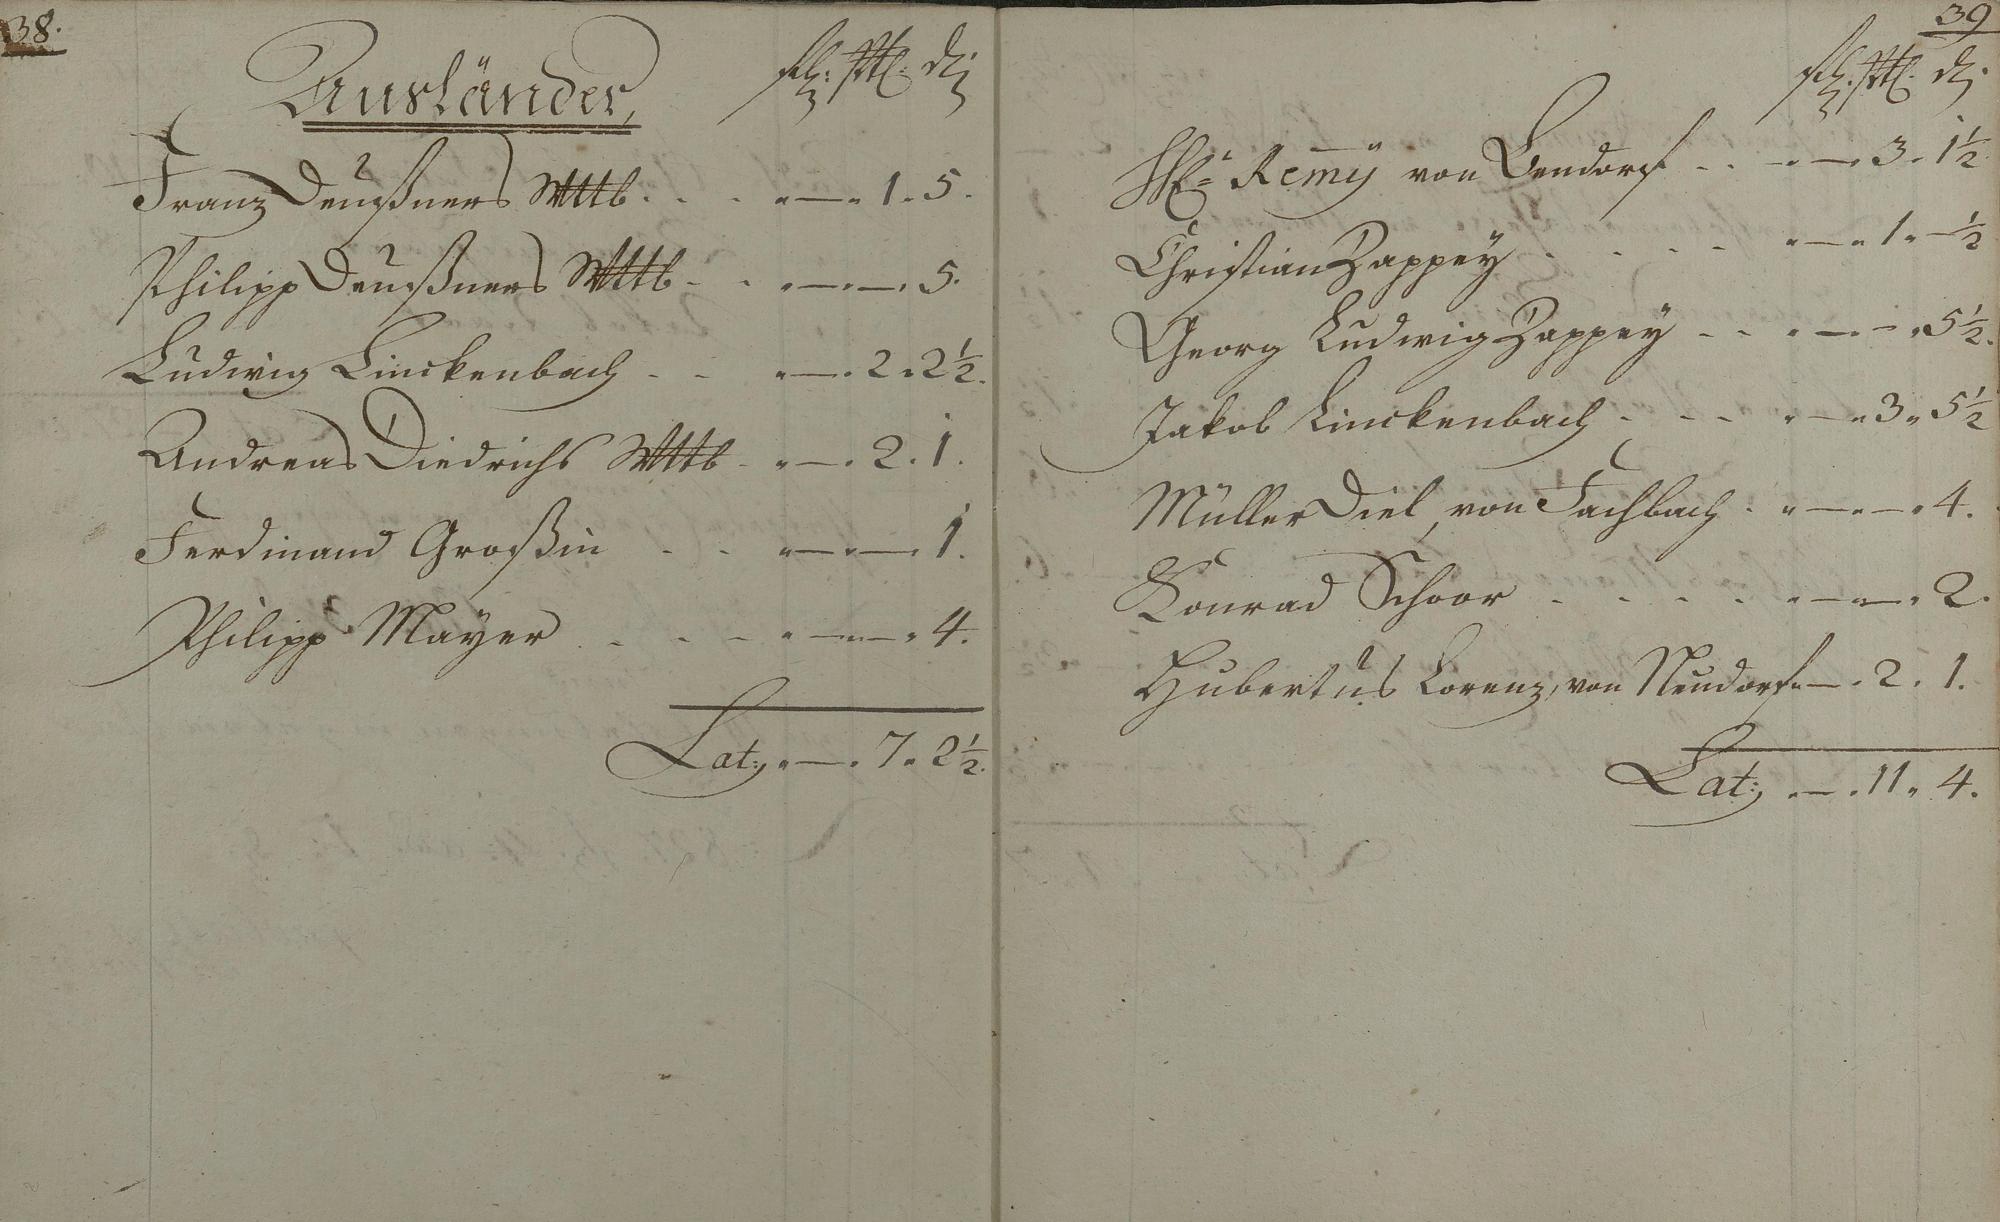 38.
Ausländer,
Franz Deußners Wttb. . . " — " 1. 5.
Philipp Deußners Wttb - - " — " — " 5.
Ludwig Linckenbach - - " — . 2 . 2 1/2.
Andreas Diedrichs Wttb - " — . 2. 1.
Ferdinand Großin - - " — " — . 1.
Philipp Mayer . - - - " — " — " 4.
Lat: " — . 7 " 2 1/2.
39
Remÿ von Bendorf - - " — . 3 . 1 1/2
Christian Zappey . . - - " — " 1 " — 1/2
Georg Ludwig Zappey - - " — " — " 5 1/2.
Jakob Linckenbach - - - " — " 3 " 5 1/2
Müller Diel, von Fachbach . " — " — " 4.
Konrad Schoor - - - - " — " — " 2.
Hubertus Lorenz, von Neudorf " — . 2 . 1.
Lat: " — . 11 " 4.